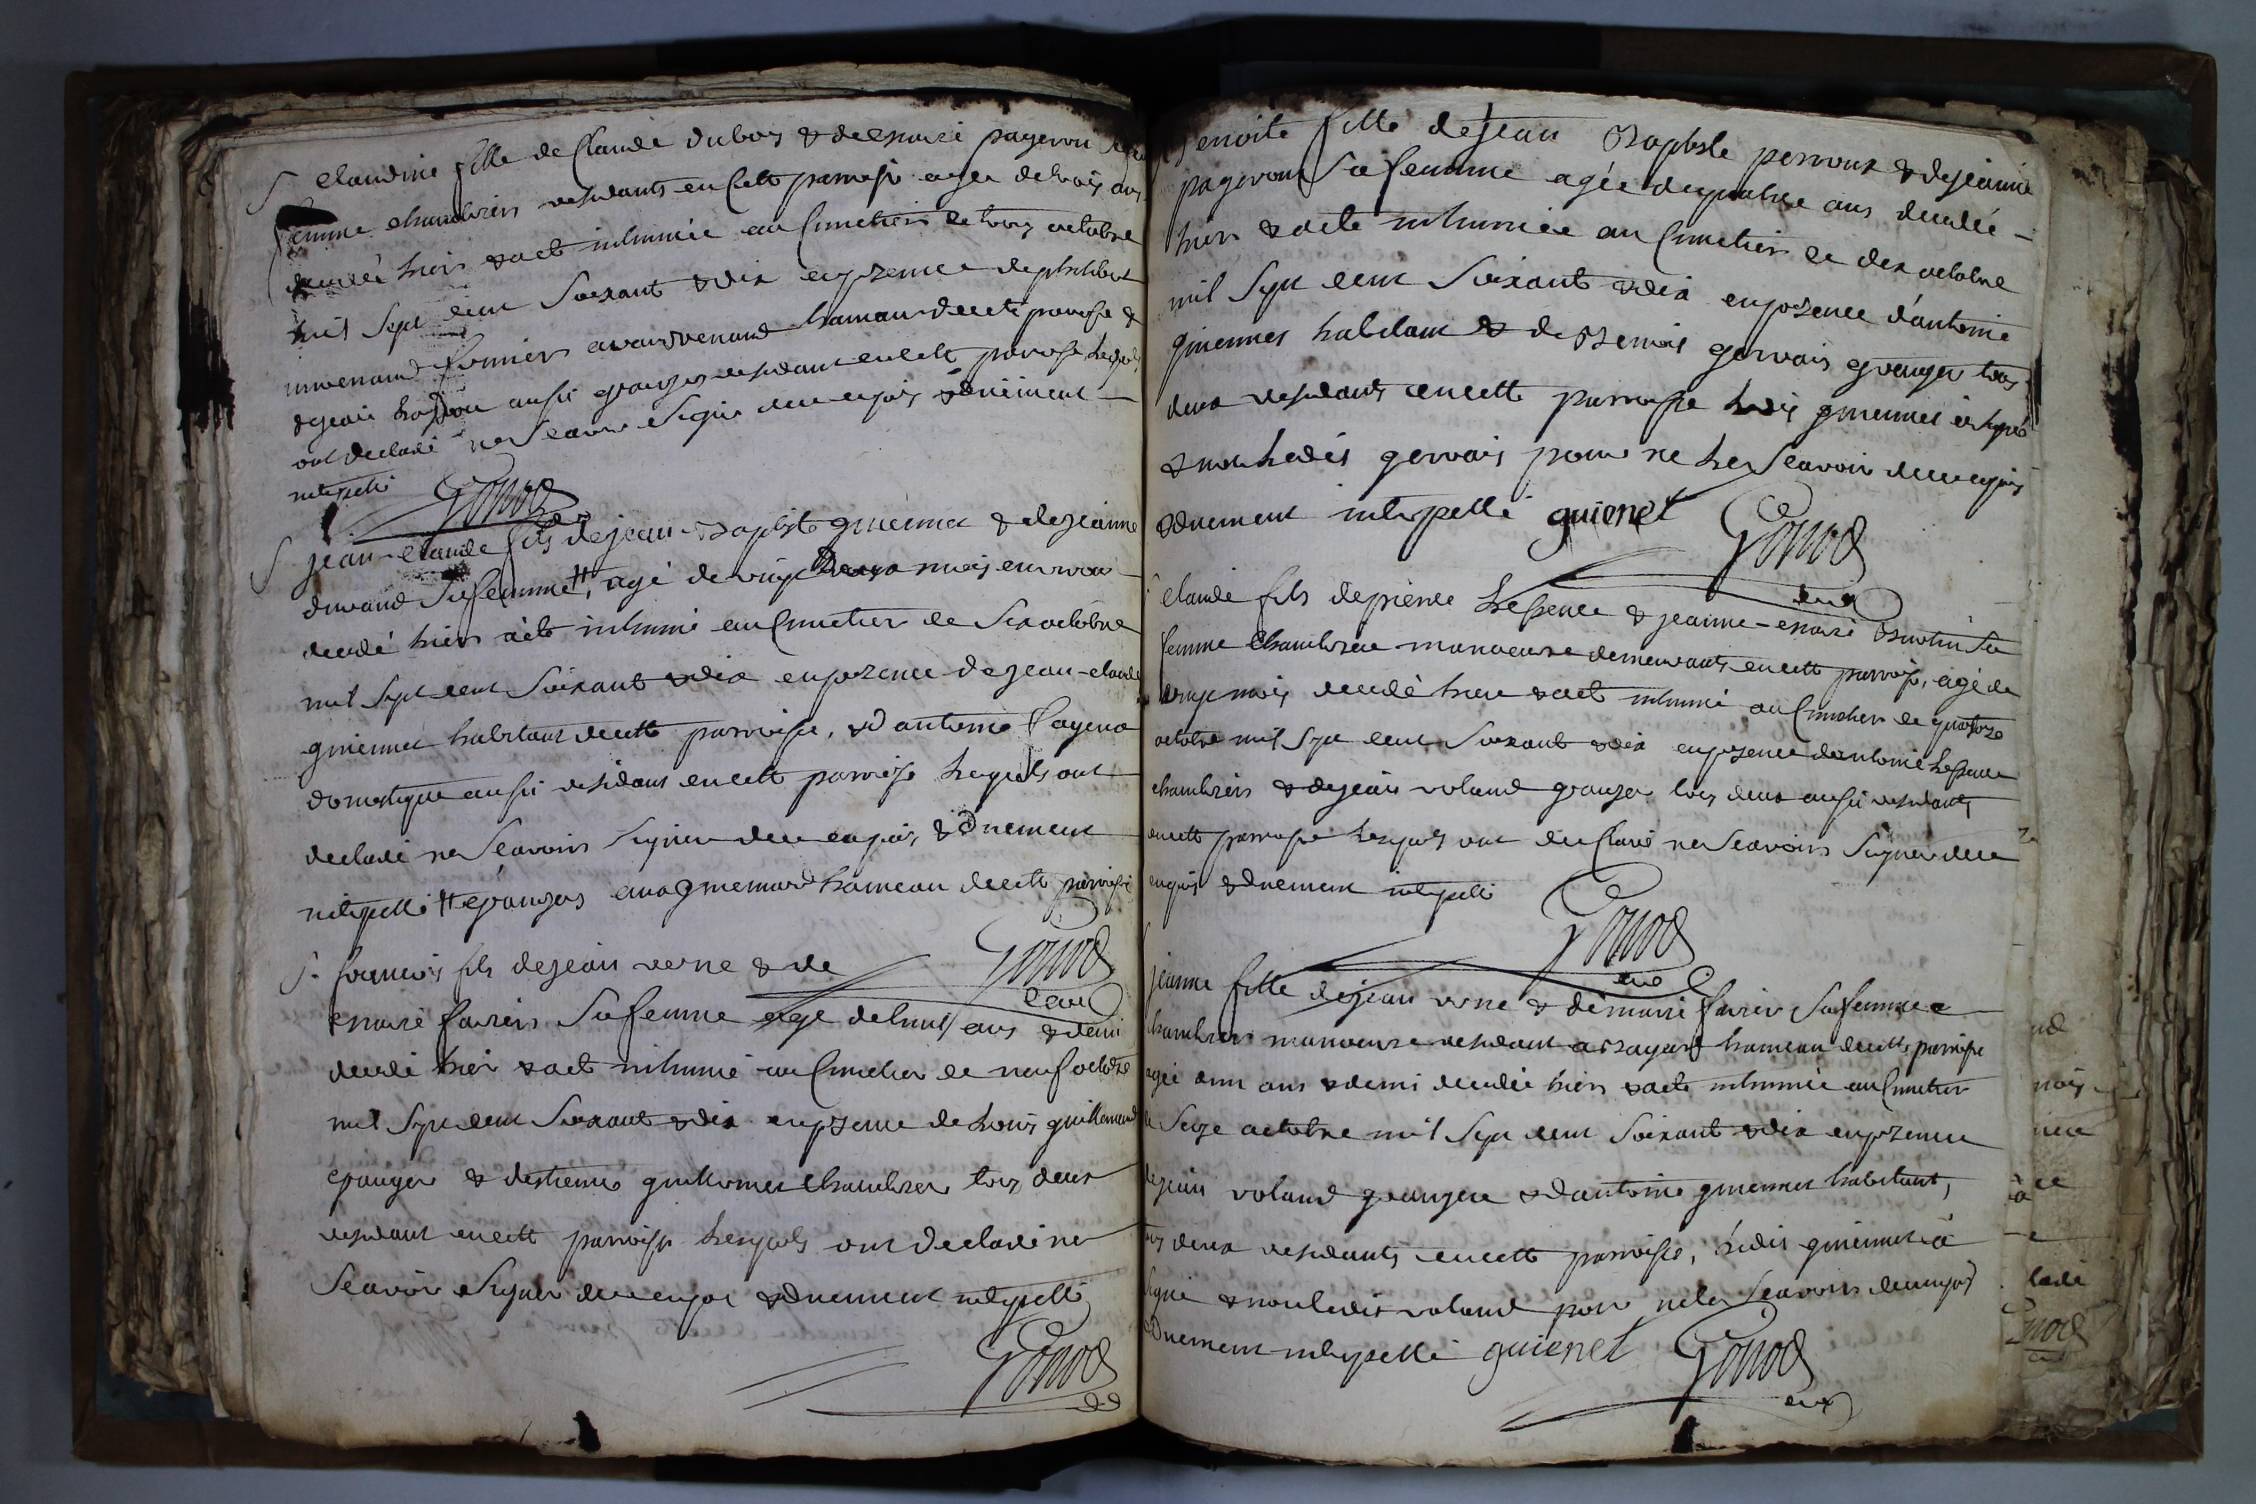 Claudine fille de Claude dubois & de marie pageron sa
femme chambriers residants en cette parroisse agée de trois ans
decedée hier & a eté inhumée au cimetiere le trois octobre
mil sept cent soixant & dix en presence de philibert
fermier a hameau de cette paroisse &
de jean aussi granger residant en cette paroisse lesquels
ont declaré ne sçavoir signer de ce enquis & duement
interpellé Gonod
jean-claude fils de jean-Baptiste guienet & de jeanne
durand sa femme ⧺, agé de vingt deux mois environ
decedé hier a eté inhumé au cimetier le six octobre
mil sept cent soixant & dix en presence de jean-claude
guienet habitant de cette parroisse, & d'antoine pageron
domestique aussi residant en cette parroisse lesquels ont
declaré ne sçavoir signer de ce enquis & duement
interpellé ⧺ grangers hameau de cette parroisse
Gonod
curé
françois fils de jean verne & de
marie favier sa femme agé de huit ans & demi
decedé hier & a eté inhumé au cimetier le neuf octobre
mil sept cent soixant & dix en presence de louis guillemaud
granger & d'estienne chambrier tous deux
residant en cette parroisse lesquels ont declaré ne
sçavoir signer de ce enquis & duement interpellé
Gonod
Benoite fille de jean Baptiste perroux & de jeanne
pageron sa femme agée de quatre ans decedée
hier & a eté inhumée au cimetier le dix octobre
mil sept cent soixant & dix en presence d'antoine
guienet habitant & de gervais granger tous
deux residants en cette parroisse ledit guienet a signé
& non ledit gervais pour ne le sçavoir de ce enquis
& duement interpellé guienet Gonod
curé
claude fils de pierre & jeanne-marie sa
femme chambrier manoeuvre demeurants en cette parroisse, agé de
mois decedé hier & a eté inhumé au cimetier le quatorze
octobre mil sept cent soixant & dix en presence d'antoine
chambrier & de jean voland granger tous deux aussi residants
en cette parroisse lesquels ont declaré ne sçavoir signer de ce
enquis & duement interpellé
Gonod
curé
jeanne fille de jean verne & de marie favier sa femme
chambrier manoeuvre residant a hameau de cette parroisse
agée d'un ans & demi decedée hier & a eté inhumée au cimetier
le seize octobre mil sept cent soixant & dix en presence
de jean voland granger & d'antoine guienet habitant,
tous deux residants en cette parroisse, ledit guienet a
signé & non ledit voland pour ne le sçavoir de ce enquis
& duement interpellé guienet Gonod
curé